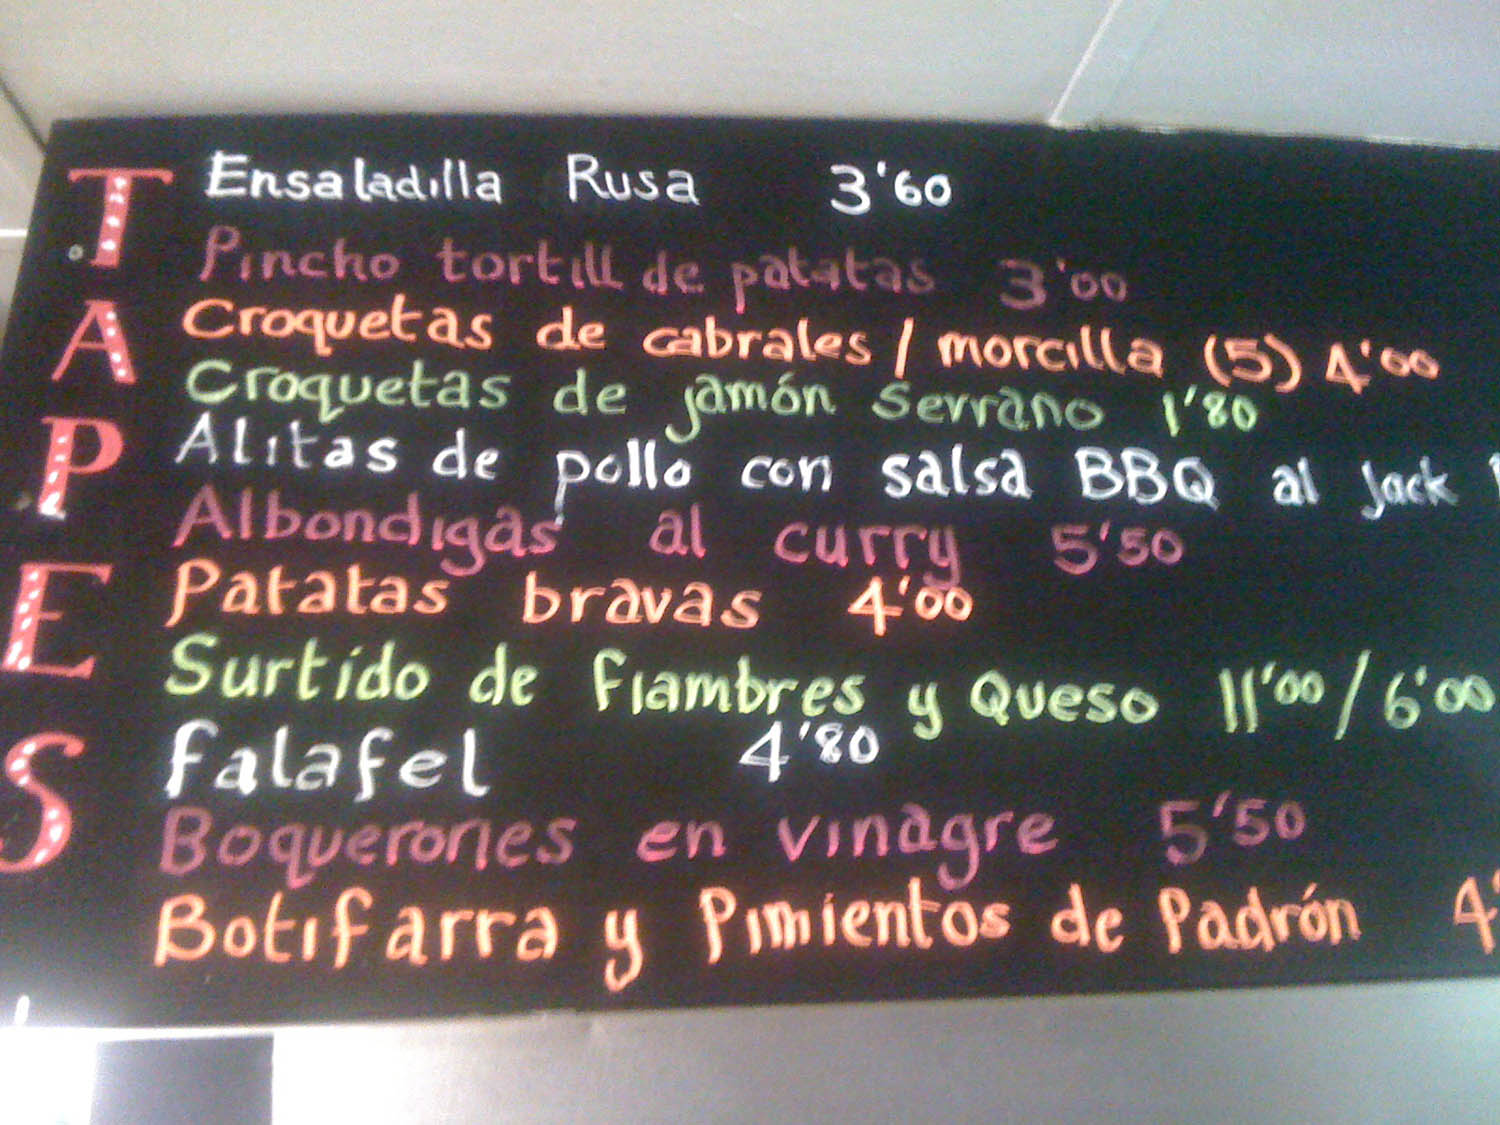 TAPES
Ensaladilla Rusa 3'60
Pincho tortill de patatas 3'00
Croquetas de cabrales / morcilla (5) 4'00
Croquetas de jamón serrano 1'80
Alitas de pollo con salsa BBQ al Jack
Albondigas al curry 5'50
Patatas bravas 4'00
Surtido de fiambres y Queso 11'00 / 6'00
falafel 4'80
Boquerones en vinagre 5'50
Botifarra y Pimientos de Padrón 4'